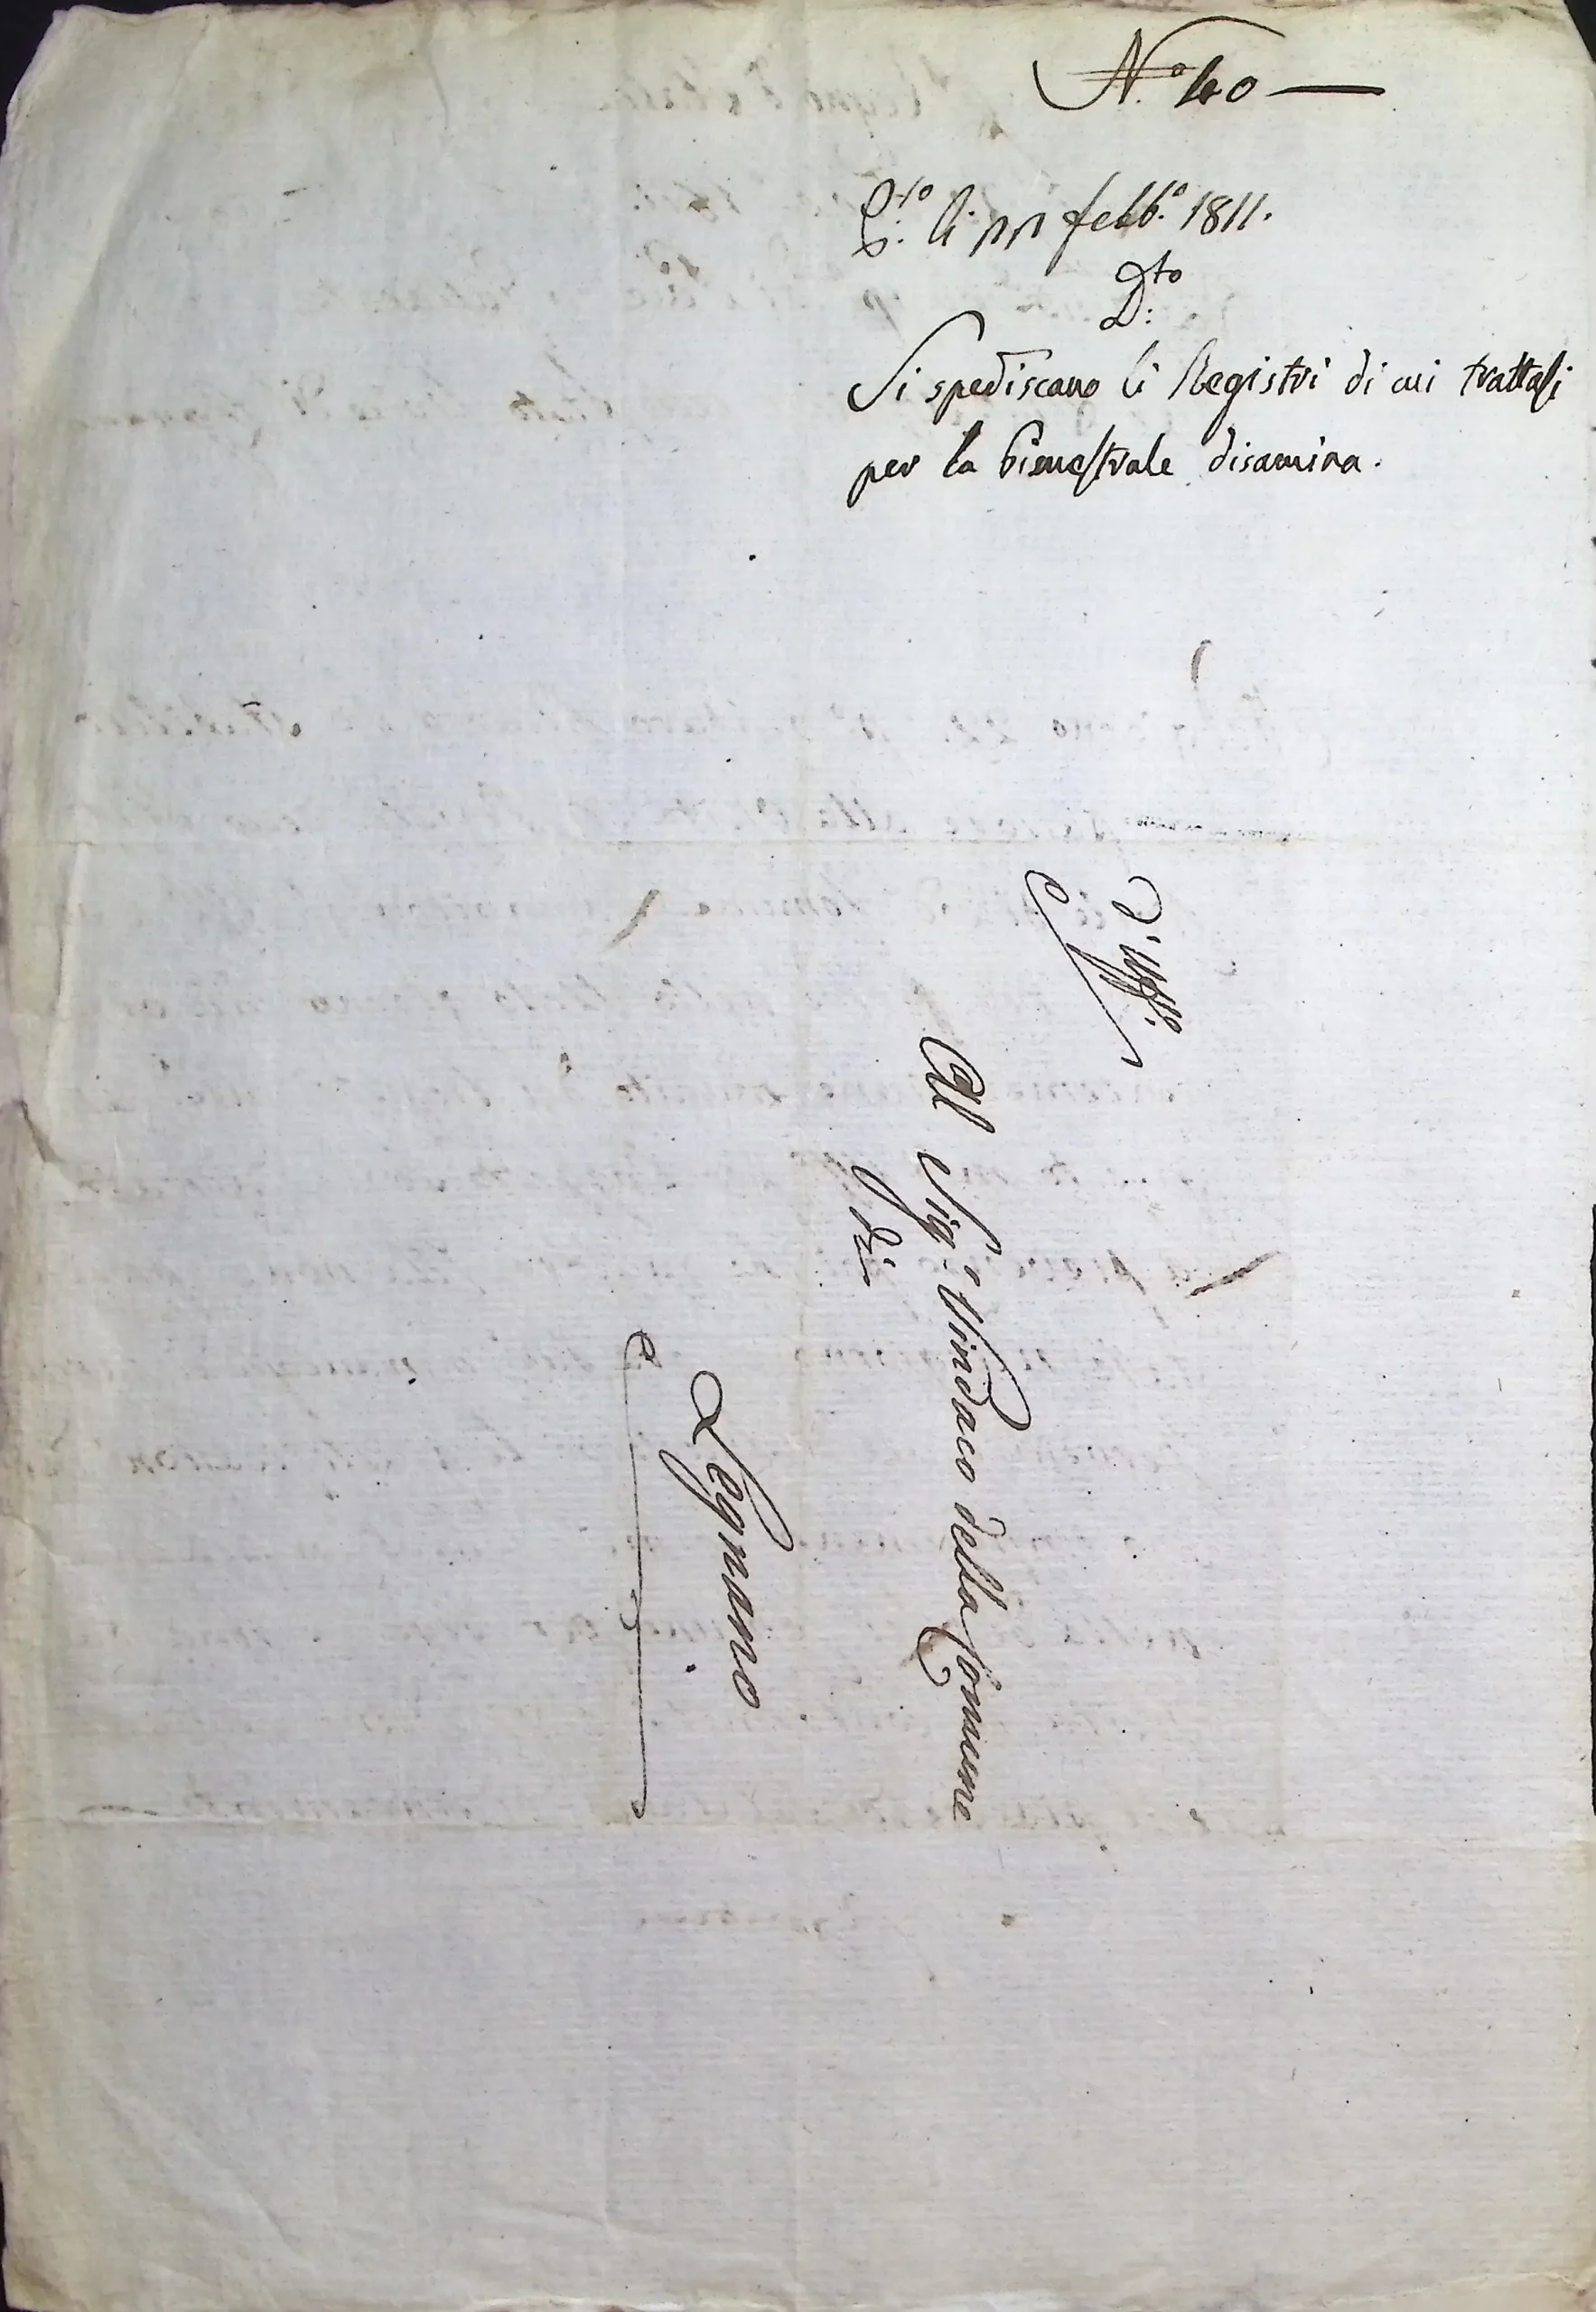 N.º 40 —
P.to li febb.º 1811.
D.to
Si spediscano li Registri di cui trattasi
per la bimestrale disamina.
d'Uff.º
Al Sig.r Sindaco della Comune
di
Legnano